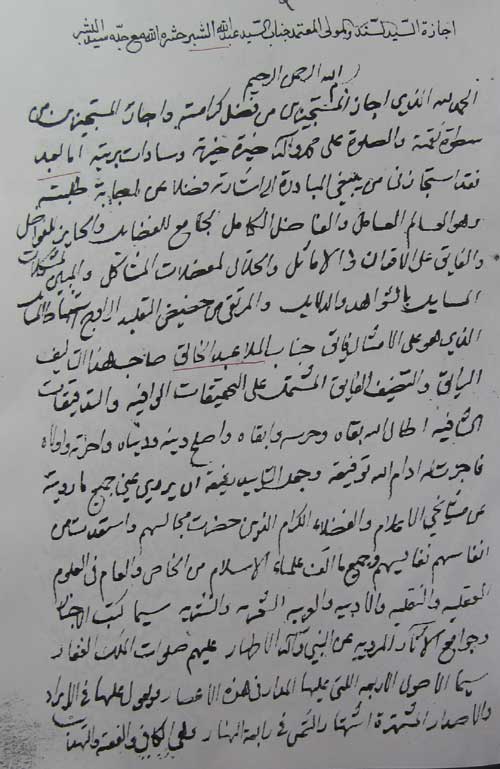 اجازة السيد السند والمولى المعتمد جناب السيد عبد الله الشبر حشره الله مع جده سيد البشر
بسم الله الرحمن الرحيم
الحمد لله الذي اجاز المستجيزين من فضل كرامته واجار المستجيرين من
سطوة نقمته والصلوة على محمد وآله خيرة خيرته وسادات بريته اما بعد
فقد استجازني من ينبغي المبادرة الى اشارته فضلا عن اجابة طلبته
وهو العالم العامل والفاضل الكامل الجامع للفضايل والحايز للفواضل
والفايق على الاقران والاماثل والحلال لمعضلات المشاكل والمبين لمشكلات
المسايل بالشواهد والدلايل والمرتقي من حضيض التقليد الى اوج استنباط المسائل
الذي هو على الامثال فايق جناب الملا عبد الخالق صاحب هذا التاليف
الرايق والتصنيف الفايق المشتمل على التحقيقات الوافية والتدقيقات
الشافية اطال الله بقاه وحرسه وابقاه واصلح دينه ودنياه واخرته واولاه
فاجزت له ادام الله توفيقه وجعل التاييد رفيقه ان يروي عني جميع ما رويته
عن مشايخي الاعلام والفضلاء الكرام الذين حضرت مجالسهم واستفدت من
انفاسهم نفايسهم وجميع ما الف علماء الاسلام من الخاص والعام في العلوم
العقليه والنقليه والادبيه والشرعيه سيما كتب الاخبار
وجوامع الاثار المرويه عن النبي وآله الاطهار عليهم صلوات الملك الغفار
سيما الاصول الاربعه التي عليها المدار في هذه الاعصار والمعول عليها في الايراد
والاصدار المشتهرة اشتهار الشمس في رابعة النهار وهي الكافي والفقيه والتهذيب